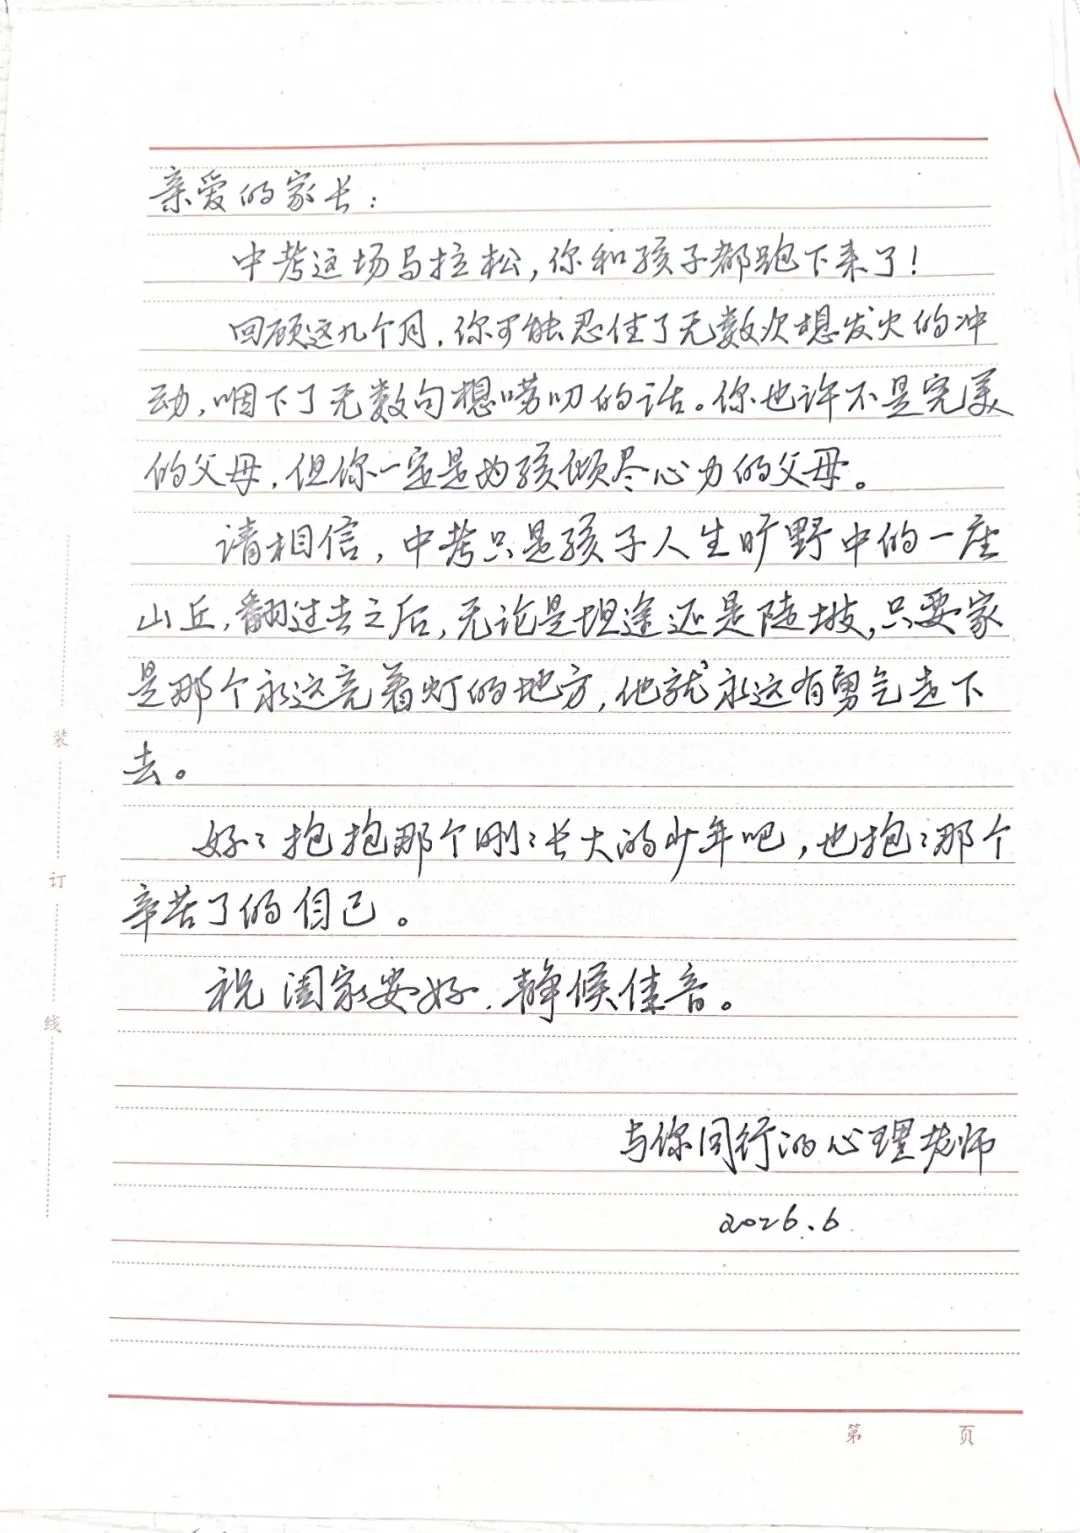 亲爱的家长：
中考这场马拉松，你和孩子都跑下来了！
回顾这几个月，你可能忍住了无数次想发火的冲
动，咽下了无数句想唠叨的话。你也许不是完美
的父母，但你一定是为孩倾尽心力的父母。
请相信，中考只是孩子人生旷野中的一座
山丘，翻过去之后，无论是坦途还是陡坡，只要家
是那个永远亮着灯的地方，他就永远有勇气走下
去。
好々抱抱那个刚々长大的少年吧，也抱々那个
辛苦了的自己。
祝阖家安好，静候佳音。
与你同行的心理老师
2026.6
装
订
线
第 页